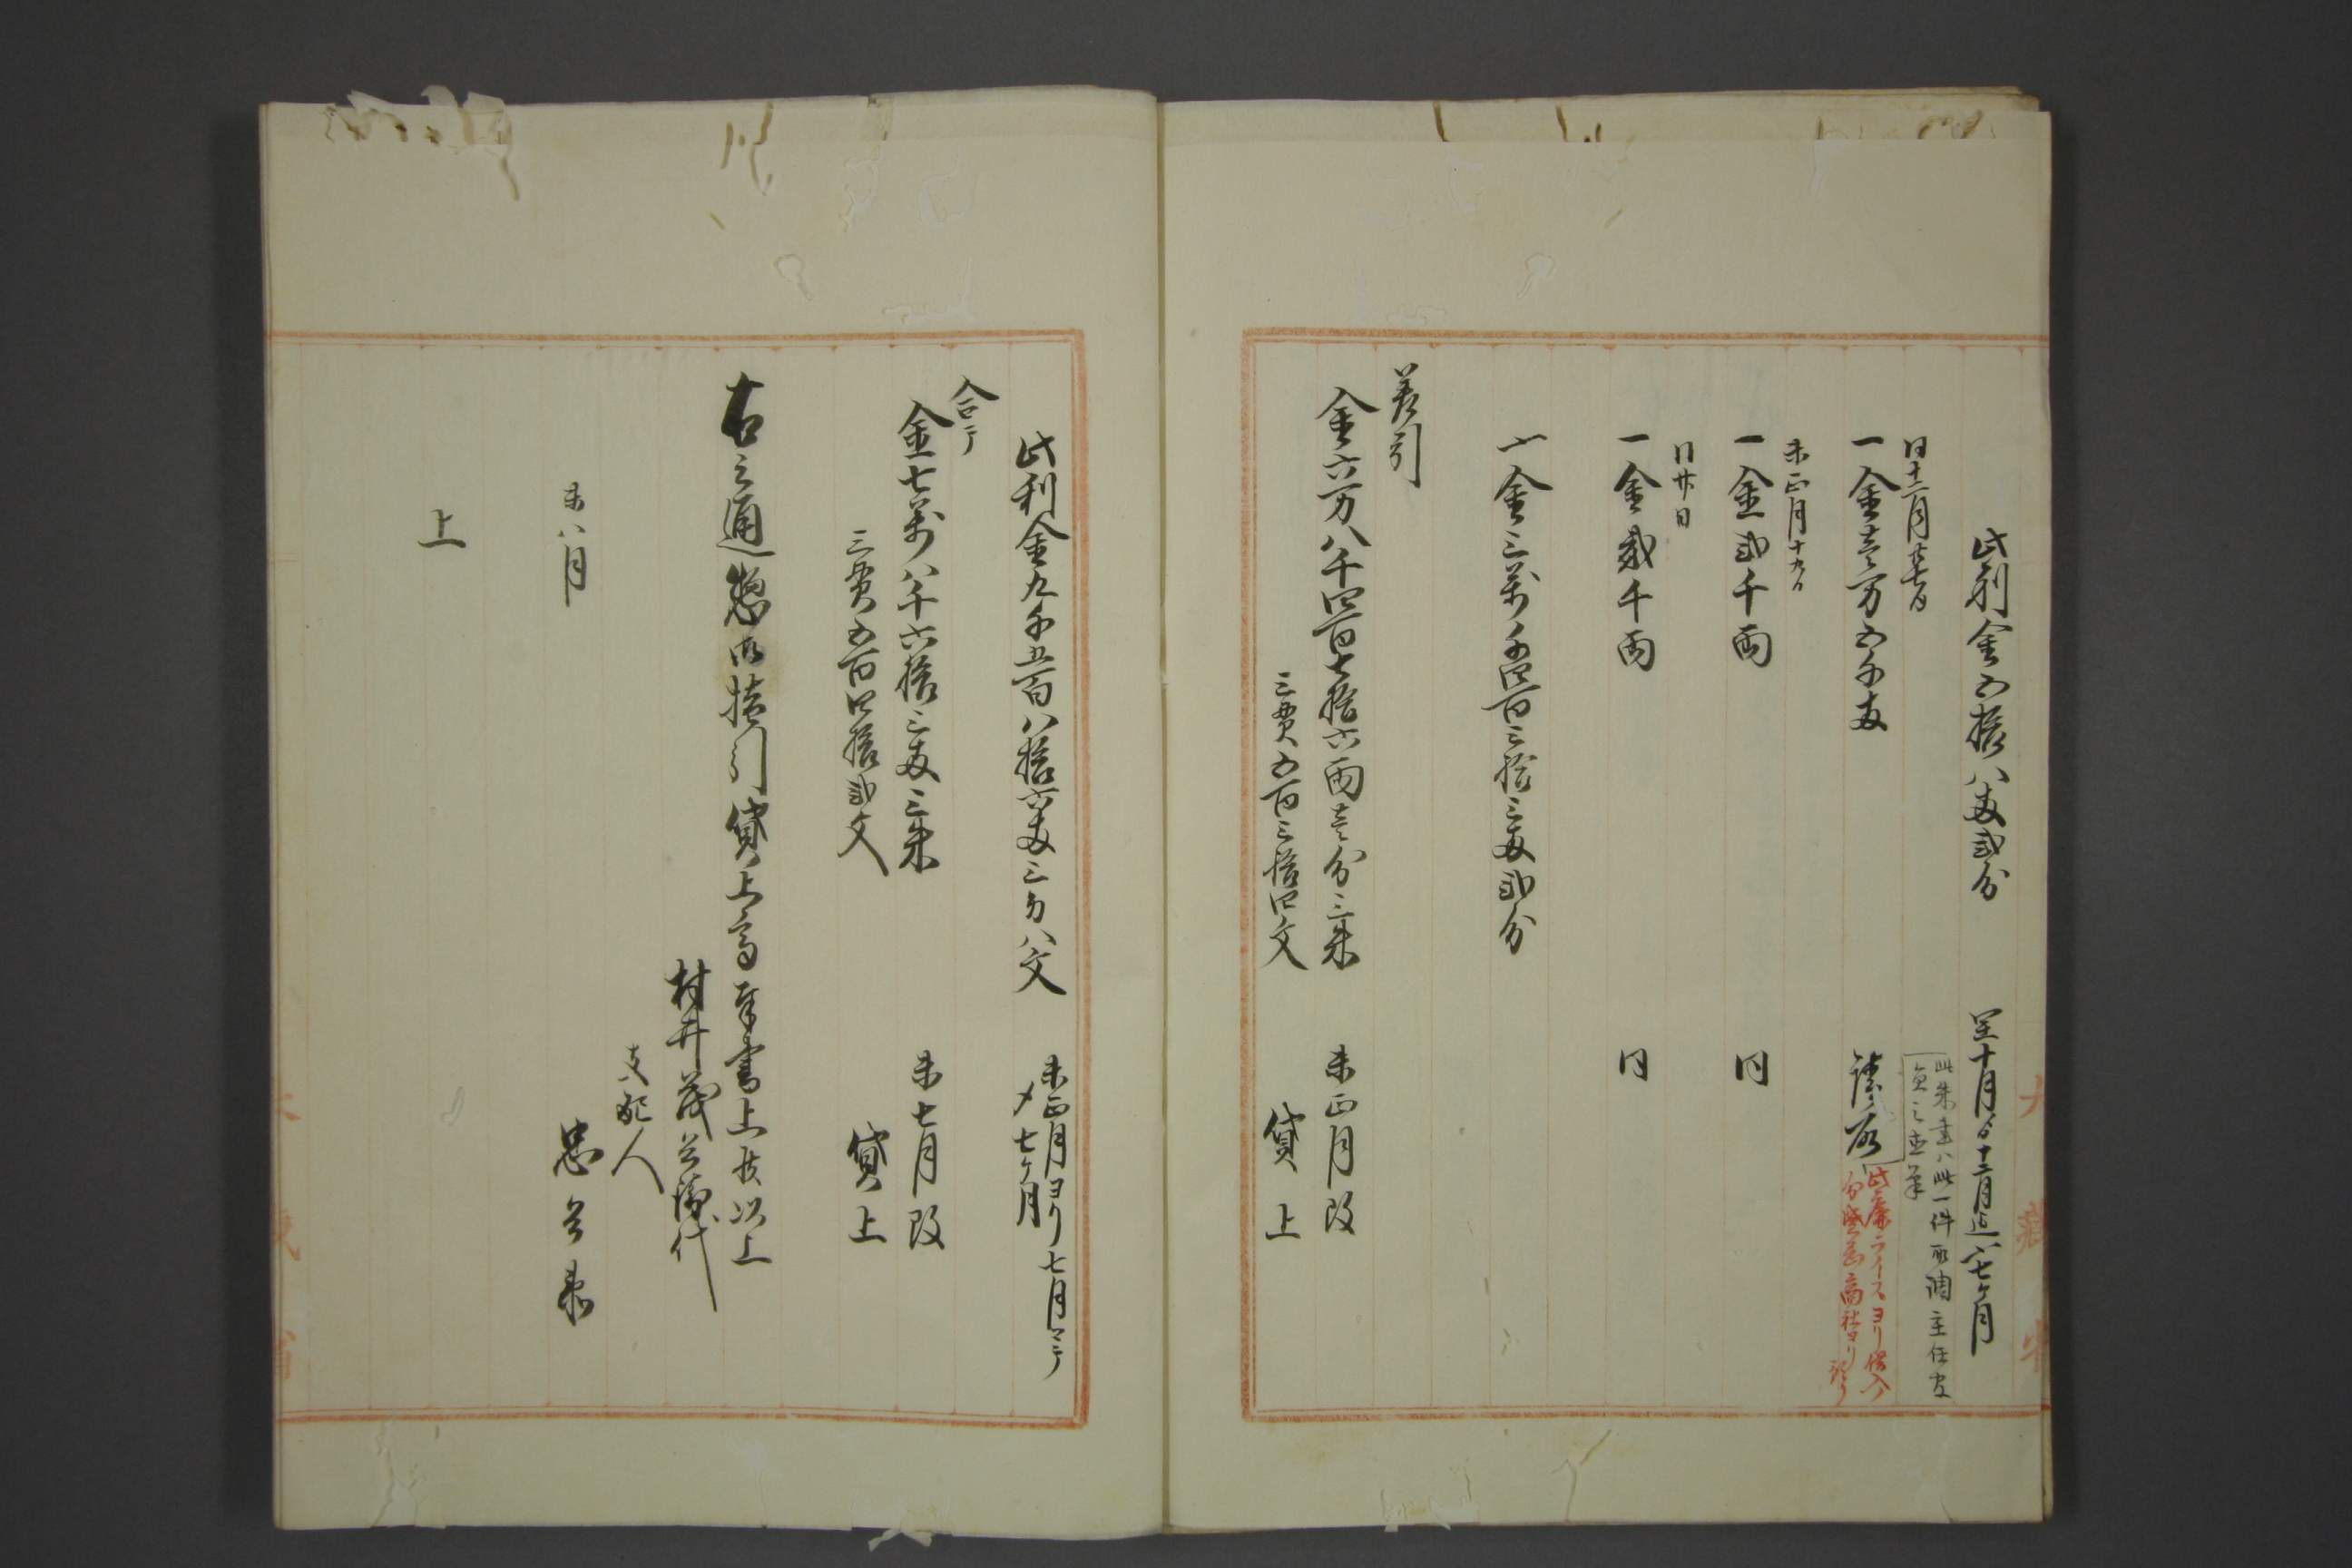 大藏省
此利金五拾八両弐分
至十月ゟ十二月迄七ケ月
同十二月廿七日
一金壱万五千両
請取
此朱書ハ此一件取調主任官
此廉ライスヨリ借入
未正月十九日
一金弐千両
同
同廿日
一金弐千両
同
一金三萬千四百三拾三両弐分
差引
金六万八千四百七拾六両壱分三朱
未正月改
三貫五百三拾四文
貸上
此利金九千五百八拾六両三分八文
未正月ヨリ七月マテ
〆七ケ月
合テ
金七萬八千六拾三両三朱
未七月改
三貫五百四拾弐文
貸上
右之通惣御差引貸上高奉書上候以上
村井茂兵衛代
支配人
未八月
忠兵衛
上
大藏省